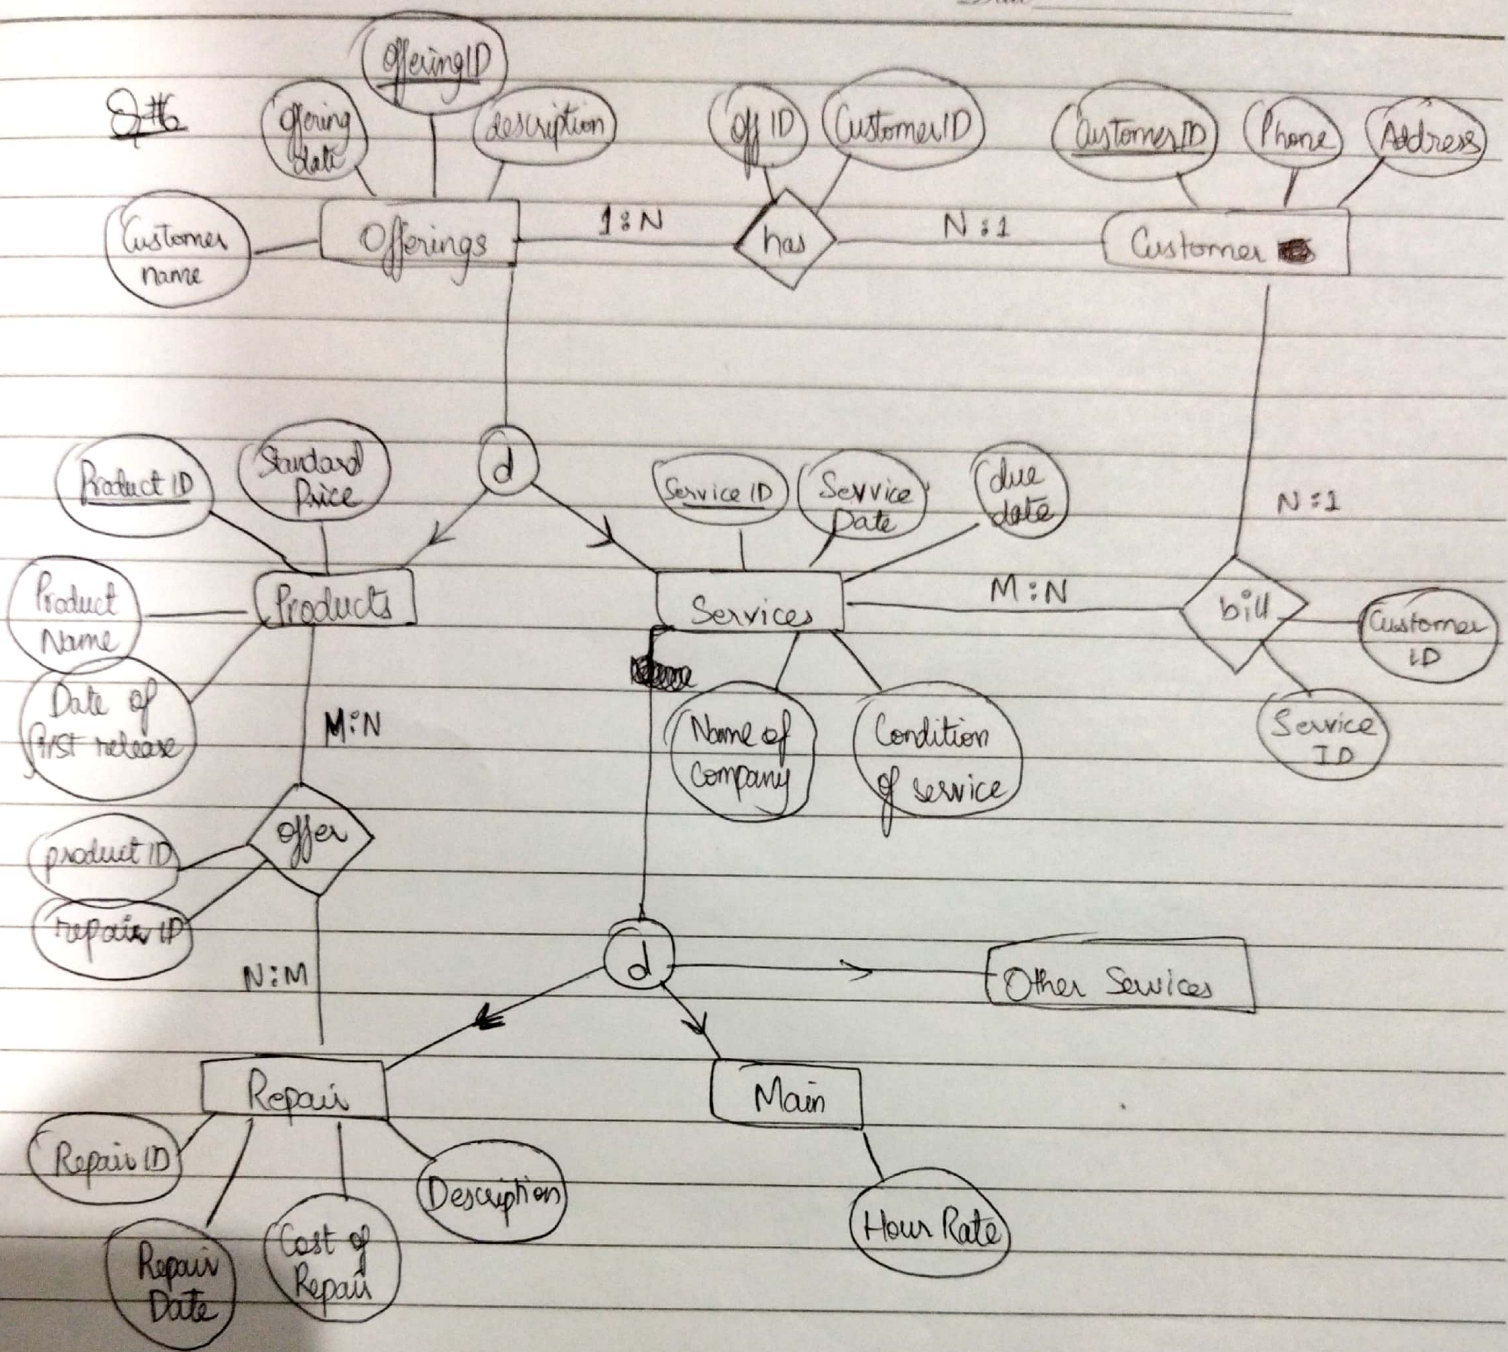 Q#6
Offering
date
OfferingID
description
Off ID
CustomerID
CustomerID
Phone
Address
Customer
name
Offerings
1:N
has
N:1
Customer
d
Product ID
Standard
Price
Service ID
Service
Date
due
date
N:1
Product
Name
Products
Services
M:N
bill
Customer
ID
Date of
first release
M:N
Name of
Company
Condition
of service
Service
ID
product ID
offer
repair ID
N:M
d
Other Services
Repair
Main
Repair ID
Description
Repair
Date
Cost of
Repair
Hour Rate